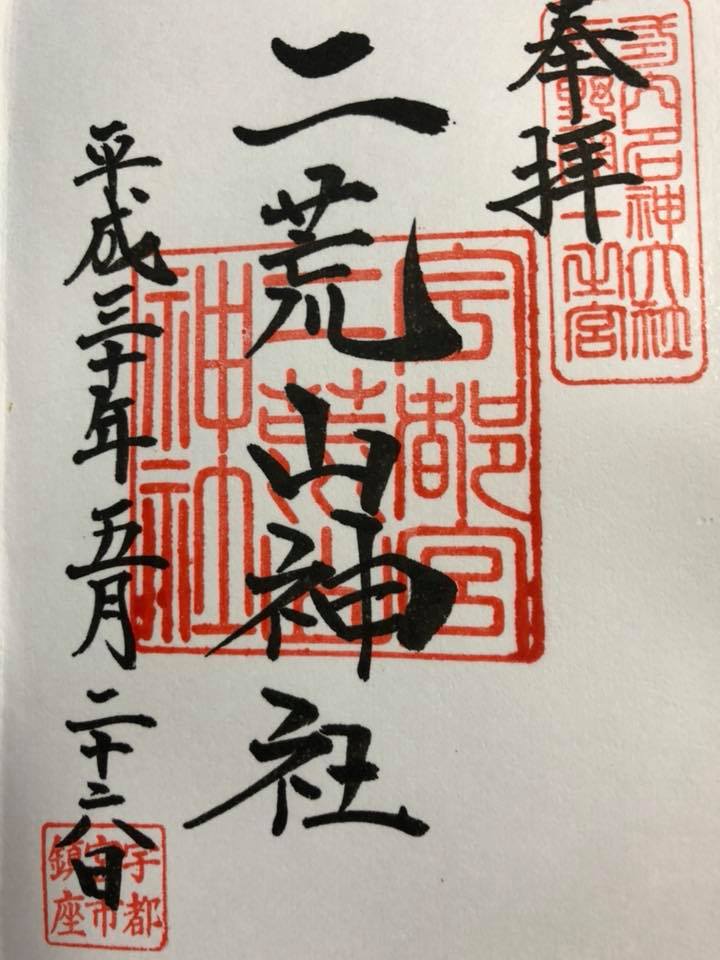 奉拝
式内名神大社
下野國一之宮
二荒山神社
宇都宮
二荒山
神社
平成三十年五月二十六日
宇都
宮市
鎮座